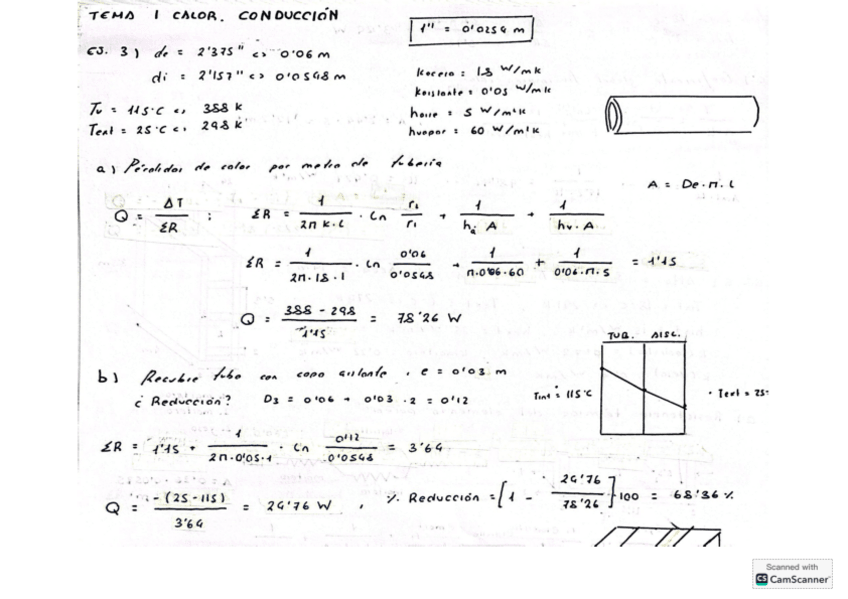 TEMA 1 CALOR. CONDUCCIÓN
1" = 0'0254 m
EJ. 3) de = 2'375" <> 0'06 m
di = 2'157" <> 0'0548 m
Kacero = 18 W/mk
Kaislante = 0'05 W/mk
haire = 5 W/m²k
hvapor = 60 W/m²k
Tv = 115°C <> 388 k
Text = 25°C <> 298 k
a) Pérdidas de calor por metro de tubería
A = De·π·L
Q = ΔT / ΣR ; ΣR = 1 / 2π k·L · Ln r₂ / r₁ + 1 / hₐ A + 1 / hv·A
ΣR = 1 / 2π·18·1 · Ln 0'06 / 0'0548 + 1 / π·0'06·60 + 1 / 0'06·π·5 = 1'15
Q = 388 - 298 / 1'15 = 78'26 W
TUB. AISL.
b) Recubre tubo con capa aislante, e = 0'03 m
¿Reducción? D3 = 0'06 + 0'03·2 = 0'12
Tint = 115°C
Text = 25
ΣR = 1'15 + 1 / 2π·0'05·1 · Ln 0'12 / 0'0548 = 3'64
Q = -(25-115) / 3'64 = 24'76 W, % Reducción = [1 - 24'76 / 78'26]·100 = 68'36 %
Scanned with
CS CamScanner